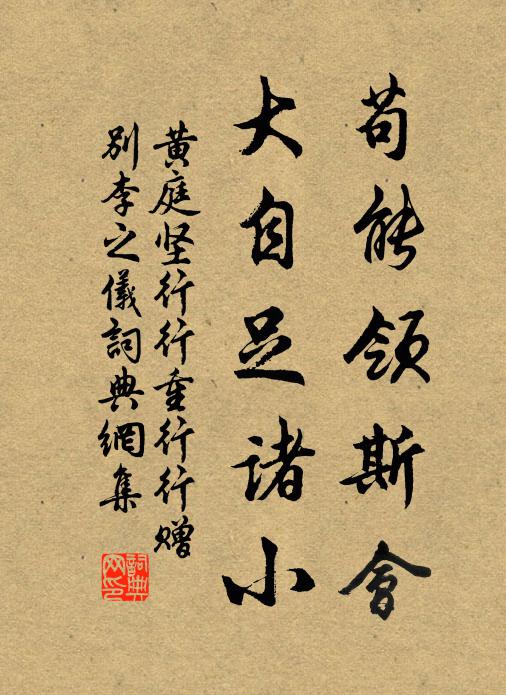 苟能領斯會
大自足諸小
黄庭坚行行重行行赠
别李之儀詞典網集
詞典
网印